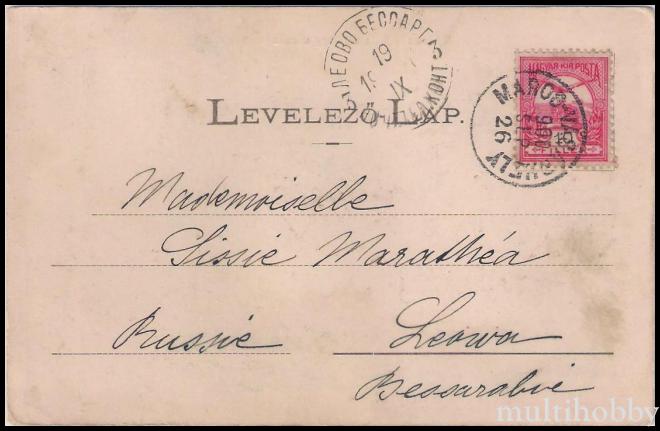 ЛЕОВО БЕССАР
19
IX
LEVELEZŐ-LAP.
MAGYAR KIR. POSTA
MAROS-VÁSÁRHELY
26
Mademoiselle
Sissie Marathéa
Russie Leowa
Bessarabie
multihobby